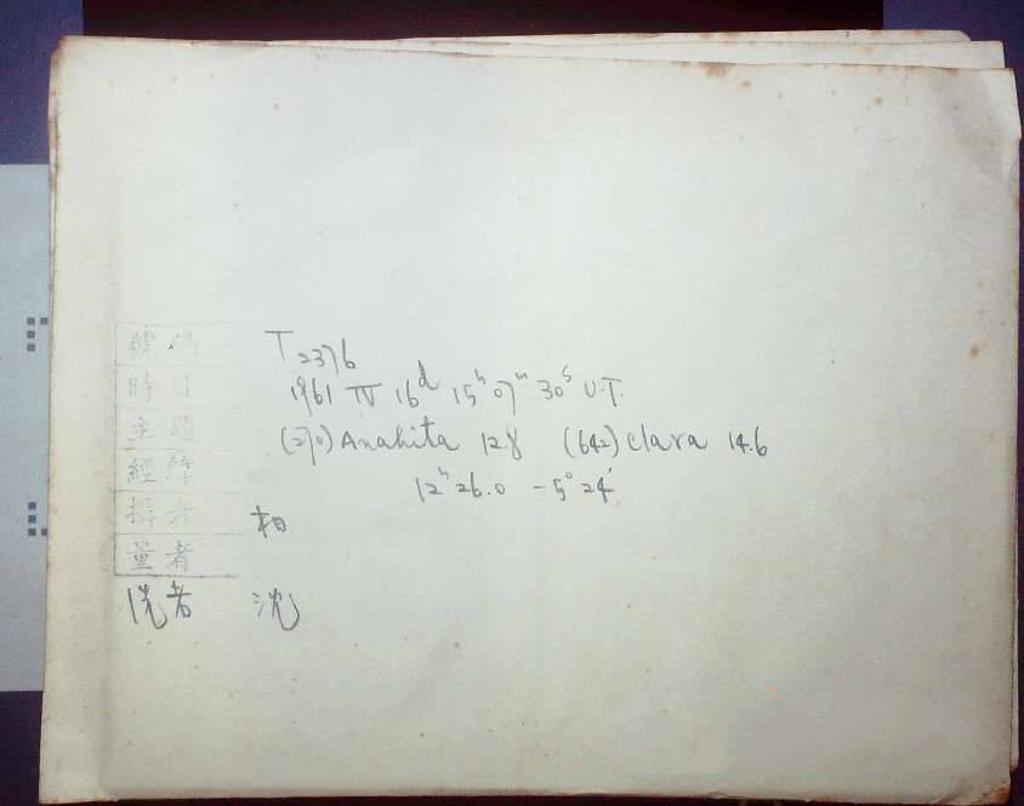 號碼 T 2376
時日 1961 IV 16d 15h 07m 30s U.T.
主題 (270) Anahita 12.8 (642) Clara 14.6
經緯 12h 26.0 -5° 24'
攝者
量者
洗者 沈